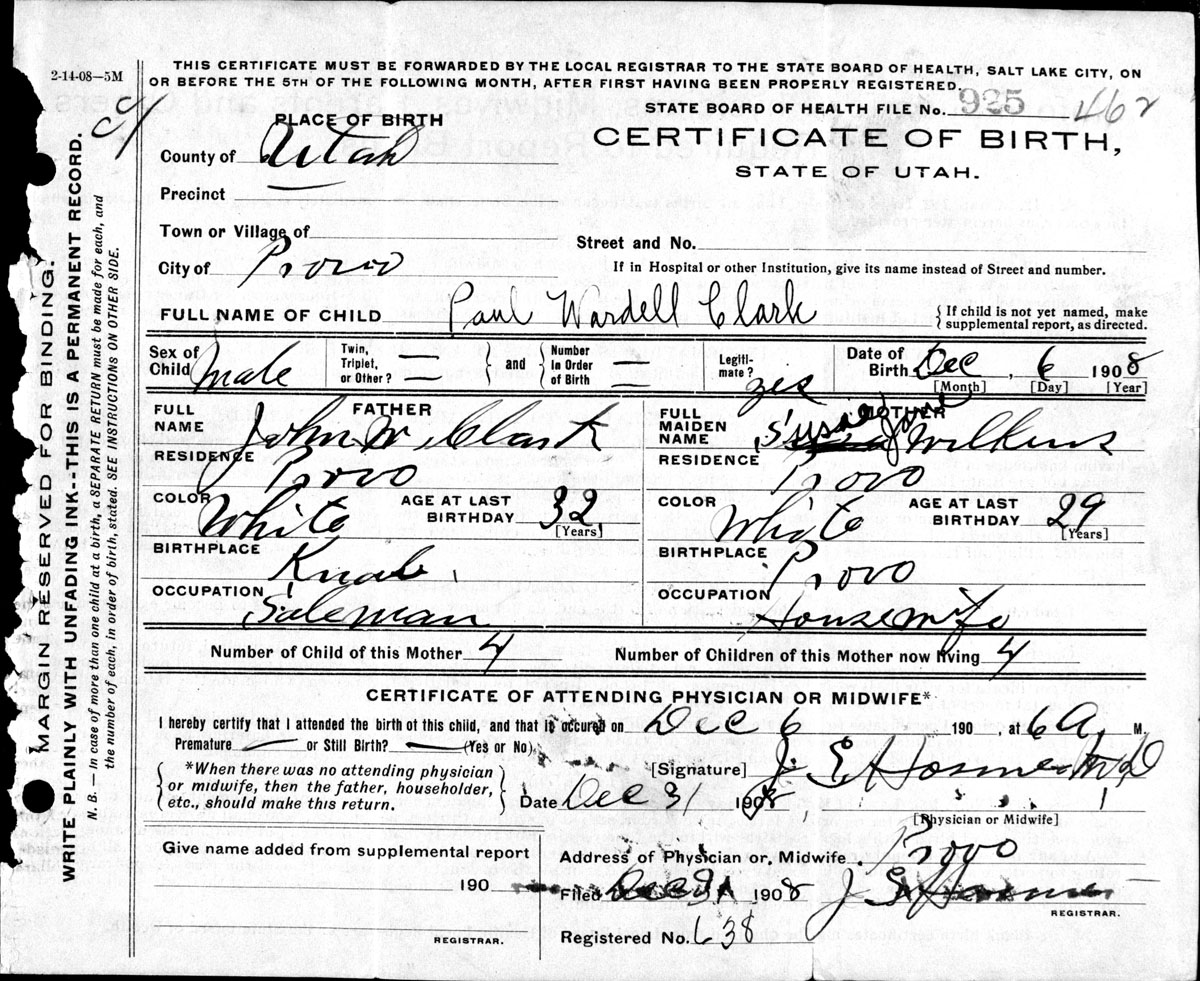 2-14-08—5M
THIS CERTIFICATE MUST BE FORWARDED BY THE LOCAL REGISTRAR TO THE STATE BOARD OF HEALTH, SALT LAKE CITY, ON
OR BEFORE THE 5TH OF THE FOLLOWING MONTH, AFTER FIRST HAVING BEEN PROPERLY REGISTERED.
STATE BOARD OF HEALTH FILE No. 925 462
PLACE OF BIRTH
CERTIFICATE OF BIRTH,
STATE OF UTAH.
County of Utah
Precinct
Town or Village of
Street and No.
City of Provo
If in Hospital or other Institution, give its name instead of Street and number.
FULL NAME OF CHILD Paul Wardell Clark { If child is not yet named, make
supplemental report, as directed.
Sex of
Child Male
Twin,
Triplet,
or Other? —
} and {
Number
in Order
of Birth —
Legiti-
mate? yes
Date of
Birth Dec , 6 1908
[Month] [Day] [Year]
FATHER
FULL
NAME John W. Clark
RESIDENCE Provo
COLOR White AGE AT LAST
BIRTHDAY 32
[Years]
BIRTHPLACE
OCCUPATION Saleman
MOTHER
FULL
MAIDEN
NAME Susie Jane Wilkins
RESIDENCE Provo
COLOR White AGE AT LAST
BIRTHDAY 29
[Years]
BIRTHPLACE Provo
OCCUPATION Housewife
Number of Child of this Mother 4 Number of Children of this Mother now living 4
CERTIFICATE OF ATTENDING PHYSICIAN OR MIDWIFE*
I hereby certify that I attended the birth of this child, and that is occured on Dec 6 190 , at 6 A. M.
Premature — or Still Birth? — (Yes or No)
{ *When there was no attending physician
or midwife, then the father, householder,
etc., should make this return. }
[Signature] J. E. Hosmer M D
Date Dec 31 1908
[Physician or Midwife]
Give name added from supplemental report
190
REGISTRAR.
Address of Physician or, Midwife Provo
Filed Dec 31 1908 J E Hosmer
REGISTRAR.
Registered No. 638
MARGIN RESERVED FOR BINDING.
WRITE PLAINLY WITH UNFADING INK--THIS IS A PERMANENT RECORD.
N. B. — In case of more than one child at a birth, a SEPARATE RETURN must be made for each, and
the number of each, in order of birth, stated. SEE INSTRUCTIONS ON OTHER SIDE.